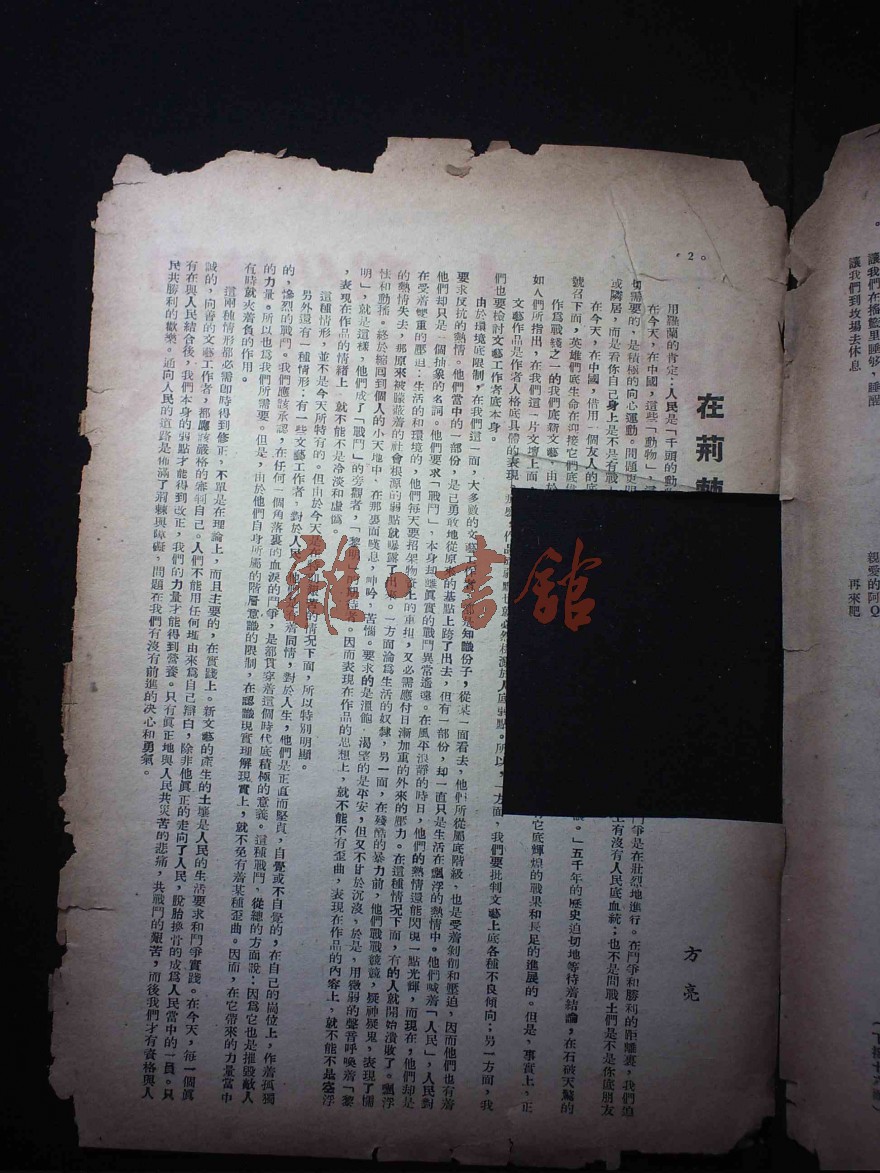 讓我們在搖籃里睡够，睡醒
讓我們到坟場去休息
親愛的阿Q
再來吧
2
在荆棘
方亮
用羅蘭的肯定：人民是「千頭的動
在今天，在中國，這些「動物」，
鬥爭是在壯烈地進行。在鬥爭和勝利的距離裏，我們迫
切需要的，是積極的向心運動。問題
上有沒有人民底血統；也不是問戰士們是不是你底朋友
或隣居，而是看你自己身上是不是有戰
在今天，在中國，借用一個友人的
」五千年的歷史迫切地等待着結論，在石破天驚的
號召下面，英雄們底生命在迎接它們底
作爲戰綫之一的我們底新文藝，由於
它底輝煌的戰果和長足的進展的。但是，事實上，正
如人們所指出，在我們這一片文壇上面
文藝作品是作者人格底具體的表現
所以，一方面，我們要批判文藝上底各種不良傾向；另一方面，我
們也要檢討文藝工作者底本身。
由於環境底限制，在我們這一面，大多數的文藝工作者，都是知識份子，從某一面看去，他們所從屬底階級，也是受着剝削和壓迫，因而他們也有着
要求反抗的熱情。他們當中的一部份，是已勇敢地從原來的基點上跨了出去，但有一部份，却一直只是生活在飄浮的熱情中。他們喊着「人民」，人民對
他們却只是一個抽象的名詞。他們要求「戰鬥」，本身却離眞實的戰鬥異常遙遠。在風平浪靜的時日，他們的熱情還能閃現一點光輝，而現在，他們却是
在受着雙重的壓迫：生活的和環境的，他們每天要招架物質上的重担，又必需應付日漸加重的外來的壓力。在這種情况下面，有的人就開始潰敗了。飄浮
的熱情失去，那原來被朦蔽着的社會根源的弱點就曝露了出來。一方面淪爲生活的奴隸，另一面，在殘酷的暴力前，他們戰戰兢兢，疑神疑鬼，表現了懦
怯和動搖。終於縮囘到個人的小天地中，在那裏面嘆息，呻吟，苦惱。要求的是溫飽，渴望的是平安，但又不甘於沉沒，於是，用微弱的聲音呼喚着「黎
明」，就是這樣，他們成了「戰鬥」的旁觀者，「黎明
因而表現在作品的思想上，就不能不有歪曲，表現在作品的內容上，就不能不是空浮
，表現在作品的情緒上，就不能不是冷淡和虛僞。
這種情形，並不是今天所特有的。但由於今天
的情况下面，所以特別明顯。
另外還有一種情形：有一些文藝工作者，對於人民，他們
着同情，對於人生，他們是正直而堅貞，自覺或不自覺的，在自己的崗位上，作着孤獨
的，慘烈的戰鬥。我們應該承認，在任何一個角落裏的血淚的鬥爭，是都貫穿着這個時代底積極的意義。這種戰鬥，從總的方面說：因爲它也是摧毀敵人
的力量。所以也爲我們所需要。但是，由於他們自身所屬的階層意識的限制，在認識現實理解現實上，就不免有着某種歪曲。因而，在它帶來的力量當中
有時就夾着負的作用。
這兩種情形都必需即時得到修正，不單是在理論上，而且主要的，在實踐上。新文藝的產生的土壤是人民的生活要求和鬥爭實踐。在今天，每一個眞
誠的，向善的文藝工作者，都應該嚴格的審判自己。人們不能用任何理由來爲自己辯白，除非他眞正的走向了人民，脫胎換骨的成爲人民當中的一員。只
有在與人民結合後，我們本身的弱點才能得到改正，我們的力量才能得到營養。只有眞正地與人民共災苦的悲痛，共戰鬥的艱苦，而後我們才有資格與人
民共勝利的歡樂。通向人民的道路是佈滿了荆棘與障礙，問題在我們有沒有前進的决心和勇氣。
雜·書館